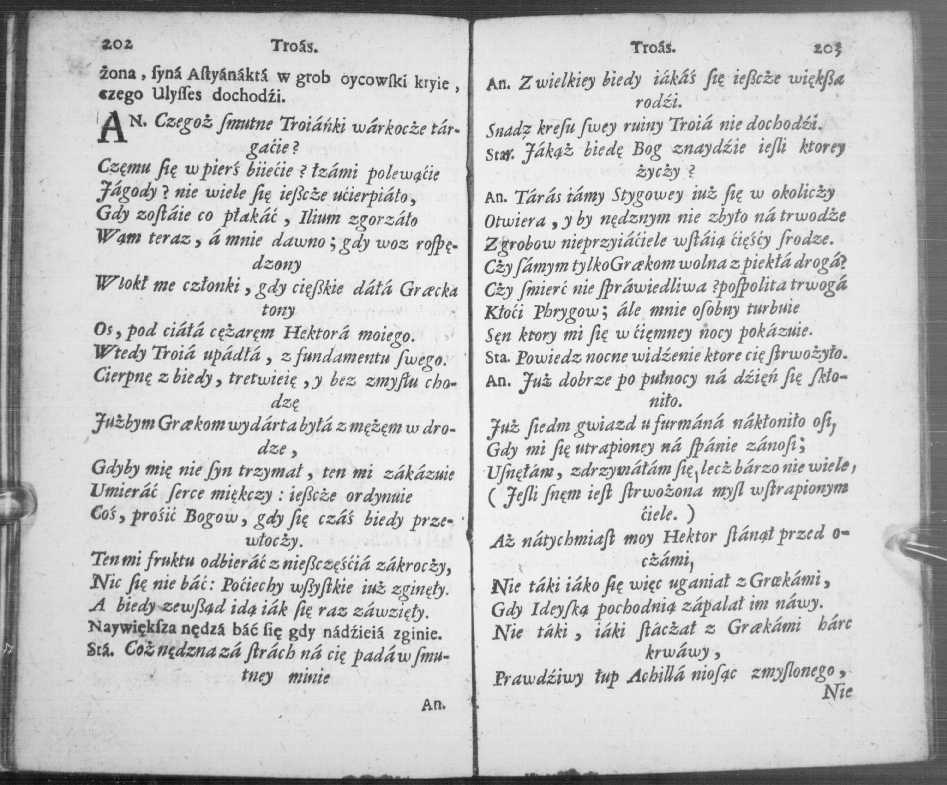 202 Troás.
żona, ſyná Aſtyánáktá w grob oycowſki kryie,
czego Ulyſſes dochodźi.
AN. Czegoż ſmutne Troiáńki wárkocże tár-
gaćie?
Częmu ſię w pierś biiećie? łzámi polewąćie
Jágody? nie wiele ſię ieſzcże ućierpiáło,
Gdy zoſtáie co płakáć, Ilium zgorzáło
Wąm teraz, á mnie dawno; gdy woz roſpę-
dzony
Wlokł me członki, gdy cięßkie dáłá Græcka
tony
Os, pod ciáłá cężaręm Hektorá moiego.
Wtedy Troiá upádłá, z fundamentu ſwego.
Cierpnę z biedy, tretwieię, y bez zmyſłu cho-
dzę
Jużbym Grækom wydárta byłá z mężęm w dro-
dze,
Gdyby mię nie ſyn trzymał, ten mi zákázuie
Umieráć ſerce miękczy: ießcże ordynuie
Coś, prośić Bogow, gdy ſię czáś biedy prze-
włoczy.
Ten mi fruktu odbieráć z nießczęśćiá zákroczy,
Nic ſię nie báć: Poćiechy wßyſtkie iuż zginęły.
A biedy zewßąd idą iák ſię raz záwzięły.
Naywiękſza nędzá báć ſię gdy nádźieiá zginie.
Stá. Coż nędzna zá ſtrách ná cię padá w ſmu-
tney minie
An.
Troás. 203
An. Z wielkiey biedy iákáś ſię ießcże więkßa
rodźi.
Snadz kreſu ſwey ruiny Troiá nie dochodźi.
Star. Jákąż biedę Bog znaydźie ieſli ktorey
życży?
An. Tárás iámy Stygowey iuż ſię w okolicży
Otwiera, y by nędznym nie zbyło ná trwodze
Z grobow nieprzyiáćiele wſtáią ćięśćy ſrodze.
Cży ſámym tylko Grækom wolna z piekłá drogá?
Cży ſmierć nie ſpráwiedliwa? poſpolita trwogá
Kłoći Phrygow; ále mnie oſobny turbuie
Sęn ktory mi ſię w ćięmney nocy pokázuie.
Sta. Powiedz nocne widźenie ktore cię ſtrwożyło.
An. Już dobrze po pułnocy ná dźięń ſię ſkło-
niło.
Już ſiedm gwiazd u furmáná nákłoniło oſi,
Gdy mi ſię utrapioney ná ſpánie zánoſi;
Uſnęłám, zdrzymáłám ſię, lecż bárzo nie wiele,
( Jeſli ſnęm ieſt ſtrwożona myſl w ſtrapionym
ćiele. )
Aż nátychmiaſt moy Hektor ſtánął przed o-
cżámi,
Nie táki iáko ſię więc uganiał z Grækámi,
Gdy Ideyſką pochodnią zápalał im náwy.
Nie táki, iáki ſtácżał z Grækámi hárc
krwáwy,
Prawdźiwy łup Achillá nioſąc zmyſlonego,
Nie